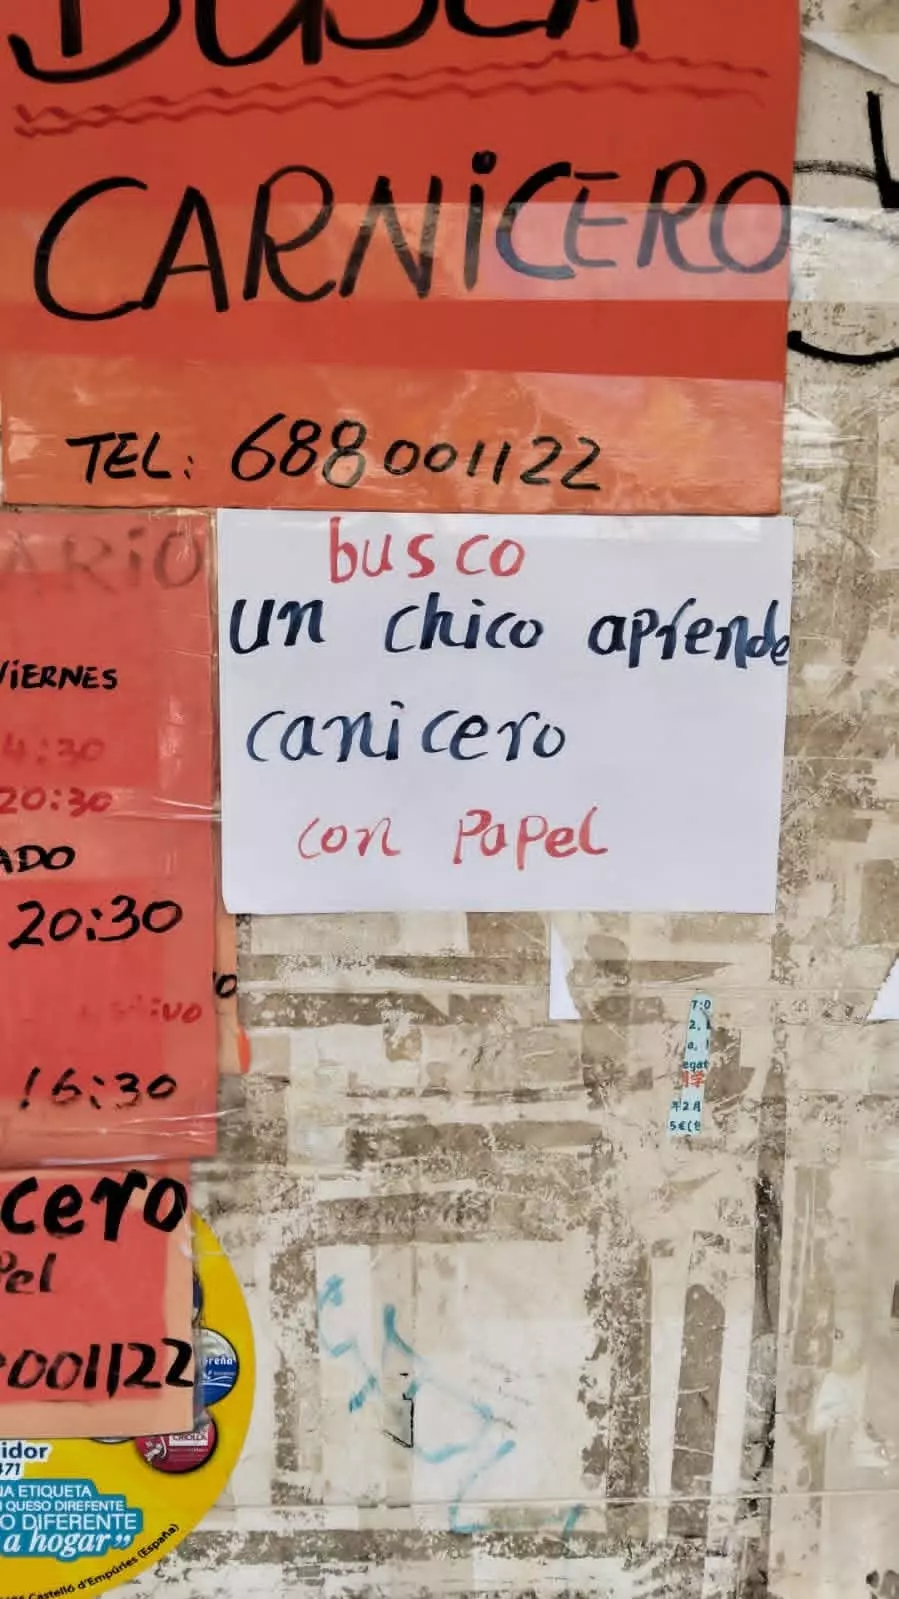 BUSCA
CARNiCERO
TEL: 688001122
busco
un chico aprende
canicero
con Papel
ARiO
ViERNES
4:30
20:30
ADO
20:30
16:30
cero
Pel
001122
idor
471
NA ETIQUETA
QUESO DIREFENTE
O DIFERENTE
a hogar”
Castelló d'Empúries (España)
7:0
2,
a, l
egat
年2月
5€(